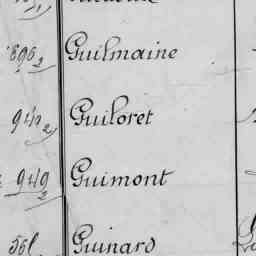 896 2 Guilmaine
940 2 Guiloret
949 2 Guimont
561 Guinard